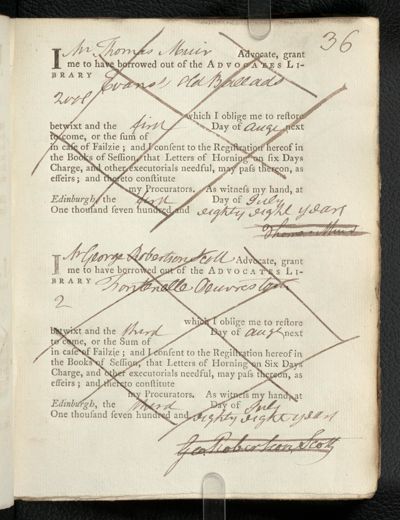 36
I Mr Thomas Muir Advocate, grant
me to have borrowed out of the ADVOCATES LI-
BRARY Evans's old Ballads
2
which I oblige me to restore
betwixt and the first Day of augt next
to come, or the sum of
in case of Failzie; and I consent to the Registration hereof in
the Books of Session, that Letters of Horning on six Days
Charge, and other executorials needful, may pass thereon, as
effeirs; and thereto constitute
my Procurators. As witness my hand, at
Edinburgh, the first Day of July
One thousand seven hundred and eighty eight years
Thomas Muir
I Mr George Robertson Scott Advocate, grant
me to have borrowed out of the ADVOCATES LI-
BRARY Fontenelle Oeuvres
2
which I oblige me to restore
betwixt and the third Day of augt next
to come, or the Sum of
in case of Failzie; and I consent to the Registration hereof in
the Books of Session, that Letters of Horning on Six Days
Charge, and other executorials needful, may pass thereon, as
effeirs; and thereto constitute
my Procurators. As witness my hand, at
Edinburgh, the third Day of July
One thousand seven hundred and eighty eight years
Geo Robertson Scott